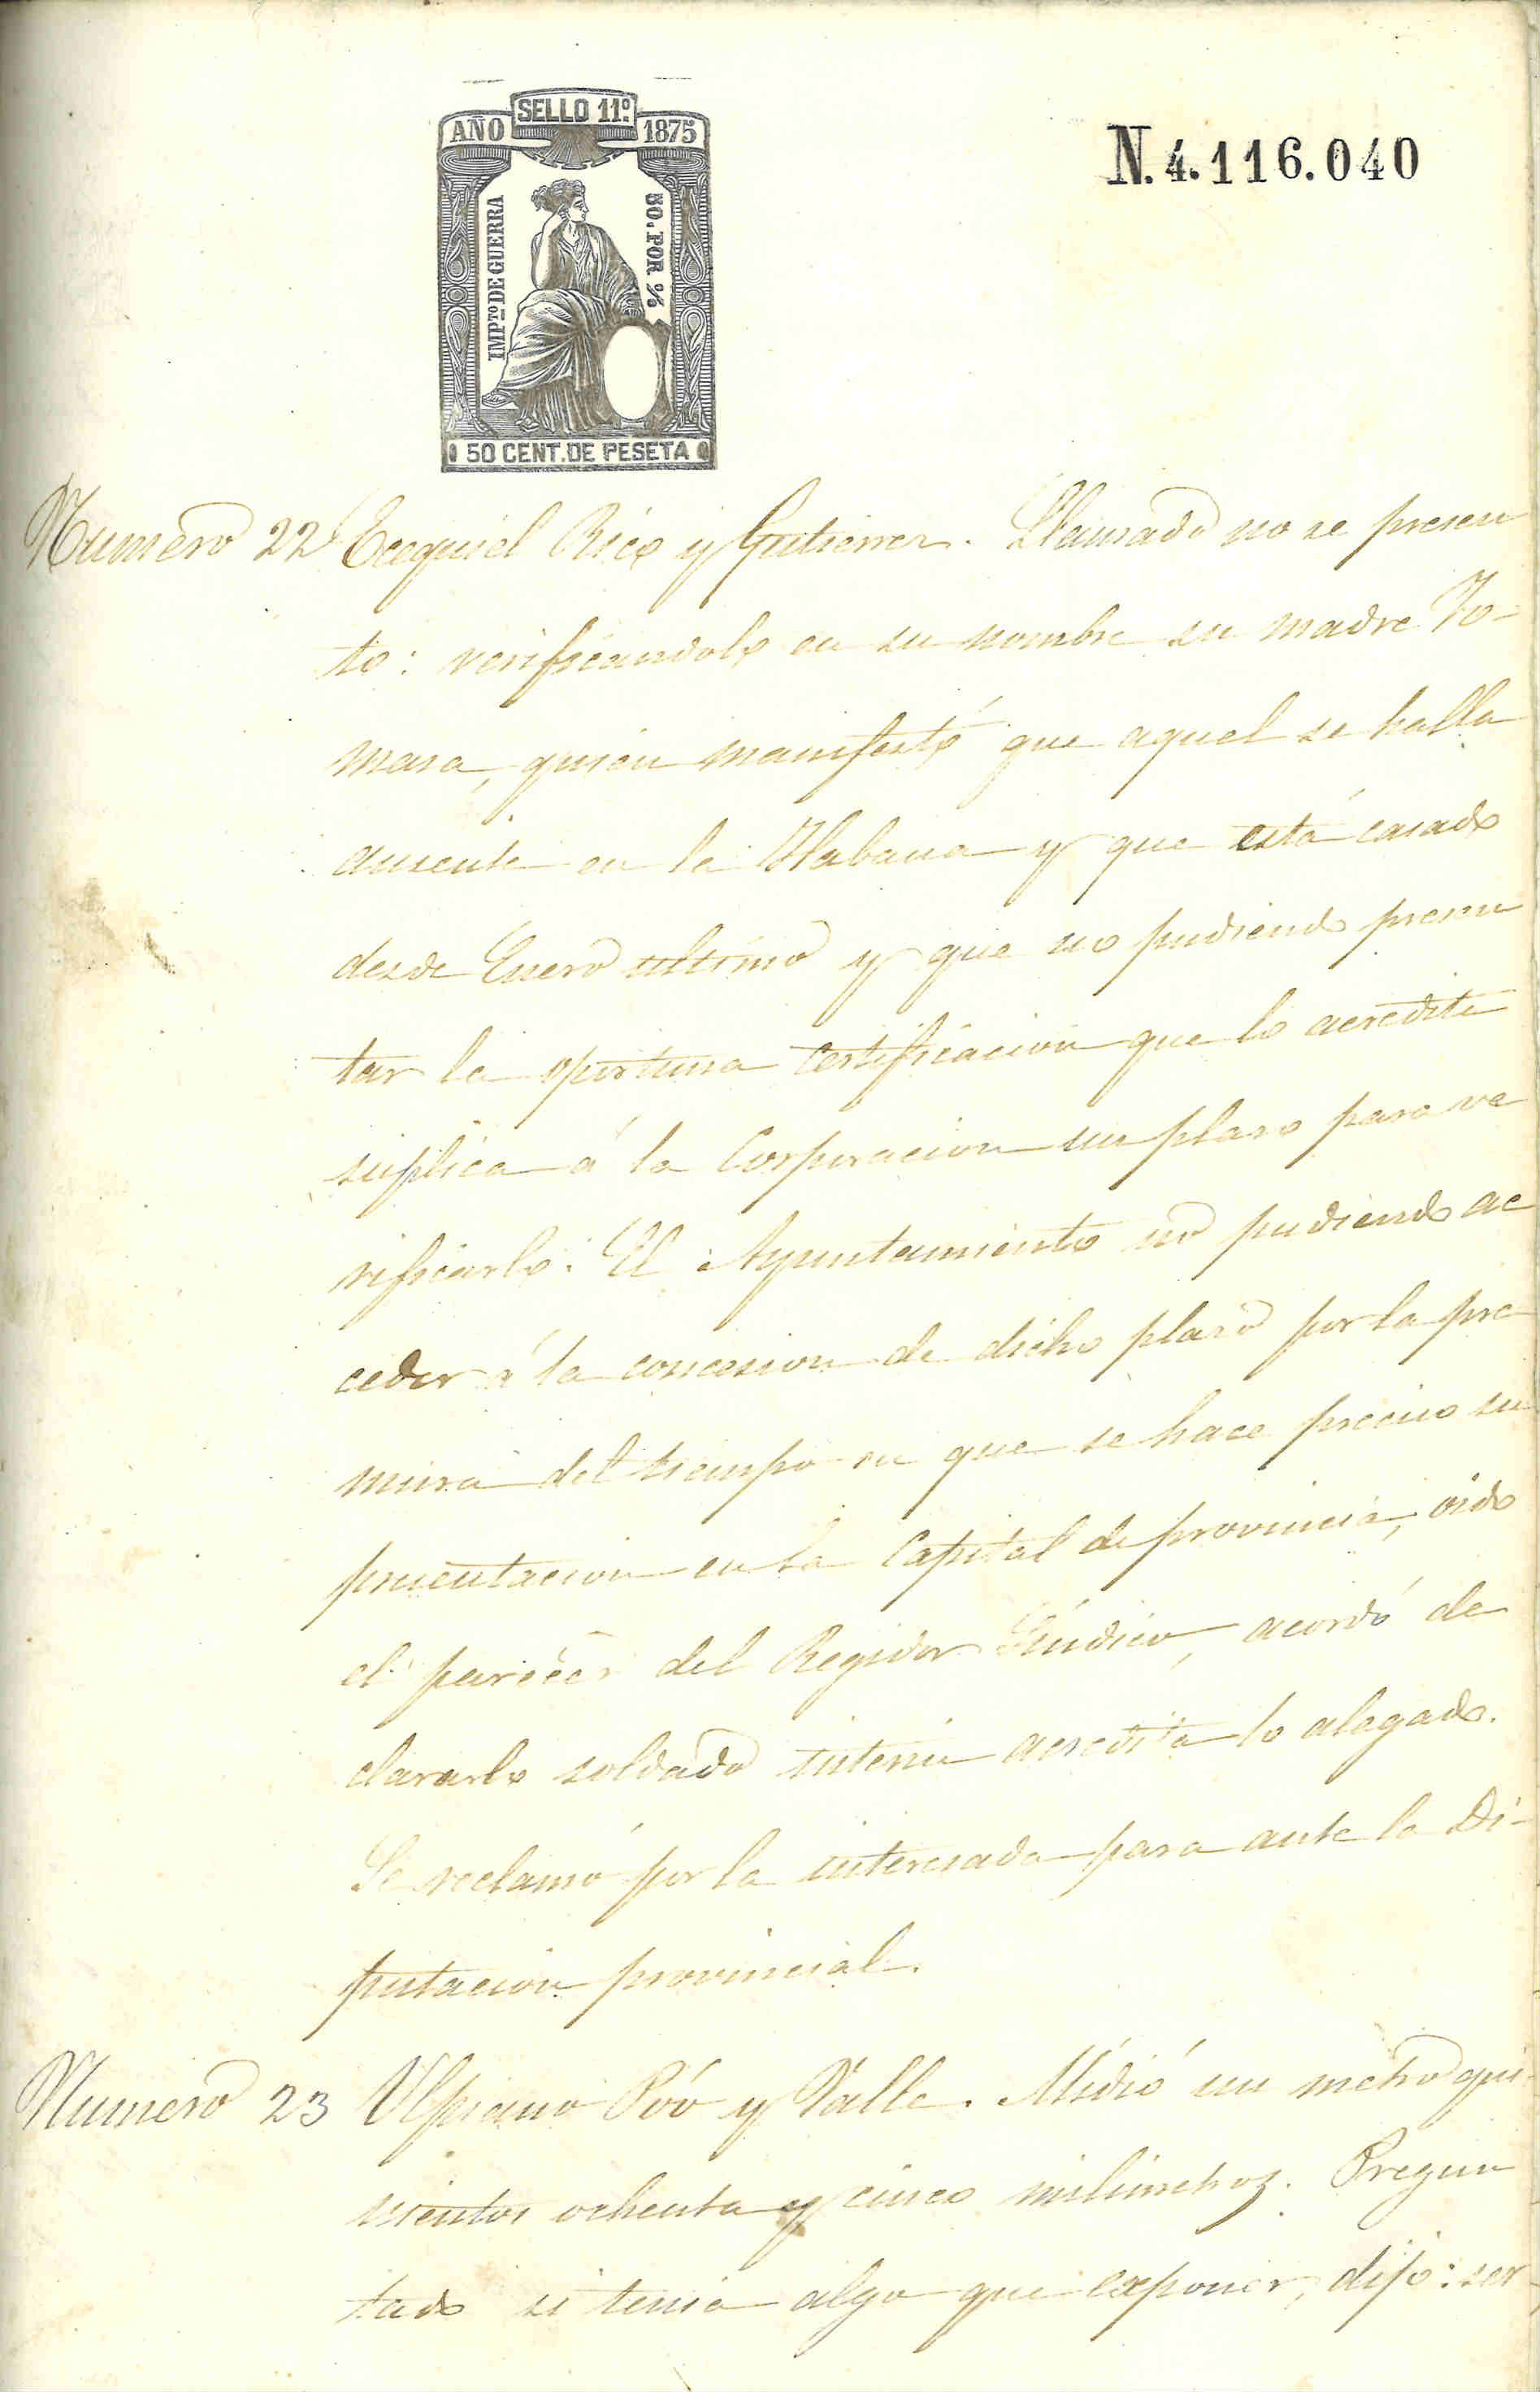 SELLO 11º
AÑO 1875
N.4.116.040
IMPTO DE GUERRA
50. POR %
50 CENT. DE PESETA
Numero 22 Ecequiel Rico y Gutierrez. Llamado no se presen
to: verificandolo en su nombre su madre To-
masa, quien manifestó que aquel se halla
ausente en la Habana y que está casado
desde Enero ultimo y que no pudiendo presen
tar la oportuna certificacion que lo acredite
suplica á la Corporacion un plazo para ve
rificarlo. El Ayuntamiento no pudiendo ac
ceder á la concesion de dicho plazo por la pre
mura del tiempo en que se hace preciso su
presentacion en la Capital de provincia, oido
el parecer del Regidor Síndico, acordó de
clararlo soldado interin acredita lo alegado.
Se reclamó por la interesada para ante la Di-
putacion provincial.
Numero 23 Ulpiano Póo y Valle. Midió un metro qui-
nientos ochenta y cinco milimetros. Pregun
tado si tenia algo que exponer, dijo: ser